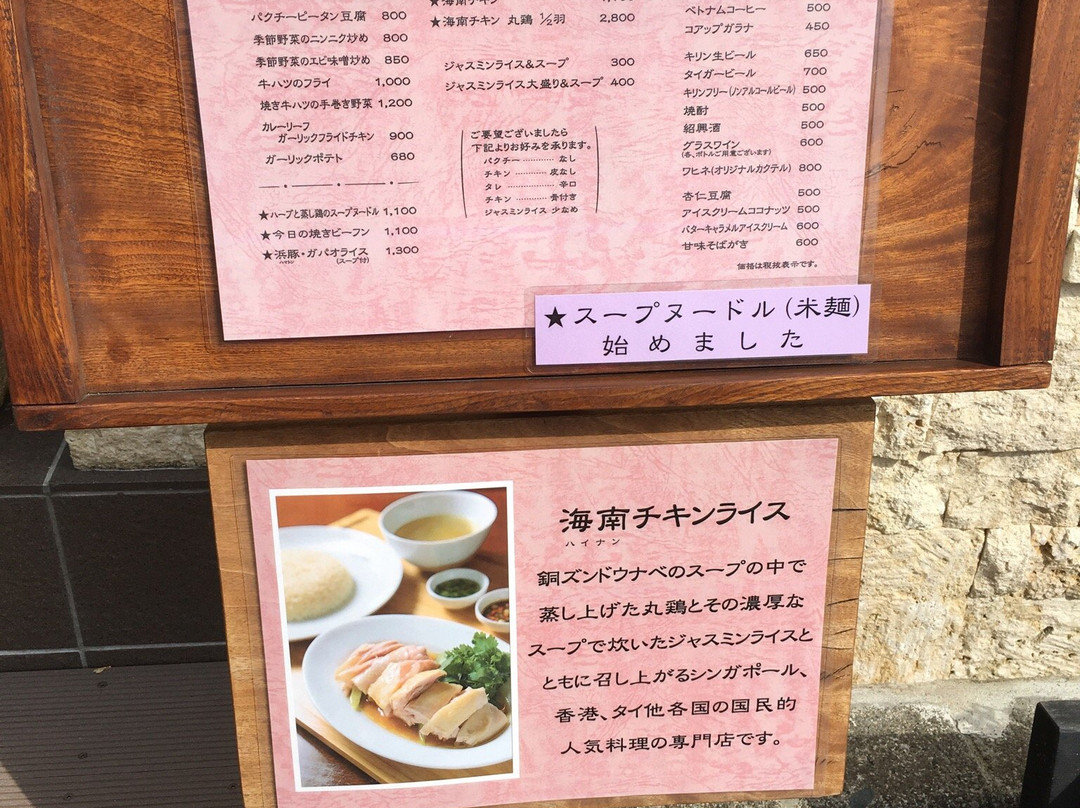 パクチーピータン豆腐 800
季節野菜のニンニク炒め 800
季節野菜のエビ味噌炒め 850
牛ハツのフライ 1,000
焼き牛ハツの手巻き野菜 1,200
カレーリーフ
ガーリックフライドチキン 900
ガーリックポテト 680
★ハーブと蒸し鶏のスープヌードル 1,100
★今日の焼きビーフン 1,100
★浜豚・ガパオライス 1,300
ハマトン (スープ付)
★海南チキン
★海南チキン 丸鶏 ½羽 2,800
ジャスミンライス&スープ 300
ジャスミンライス大盛り&スープ 400
ご要望ございましたら
下記よりお好みを承ります。
パクチー………… なし
チキン………… 皮なし
タレ ……………… 辛口
チキン ………… 骨付き
ジャスミンライス 少なめ
ベトナムコーヒー 500
コアップガラナ 450
キリン生ビール 650
タイガービール 700
キリンフリー(ノンアルコールビール) 500
焼酎 500
紹興酒 500
グラスワイン 600
(各、ボトルご用意ございます)
ワヒネ(オリジナルカクテル) 800
杏仁豆腐 500
アイスクリームココナッツ 500
バターキャラメルアイスクリーム 600
甘味そばがき 600
価格は税抜表示です。
★スープヌードル(米麺)
始めました
海南チキンライス
ハイナン
銅ズンドウナベのスープの中で
蒸し上げた丸鶏とその濃厚な
スープで炊いたジャスミンライスと
ともに召し上がるシンガポール、
香港、タイ他各国の国民的
人気料理の専門店です。